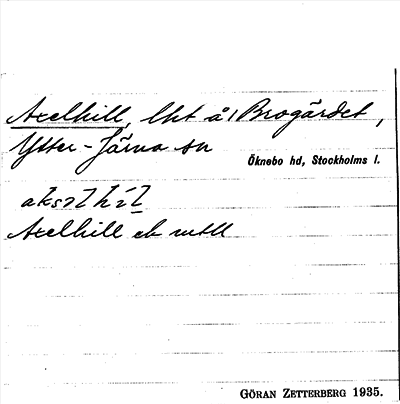 Axelhill, lht å Brogärdet,
Ytter-Järna sn
Öknebo hd, Stockholms l.
Axelhill
GÖRAN ZETTERBERG 1935.